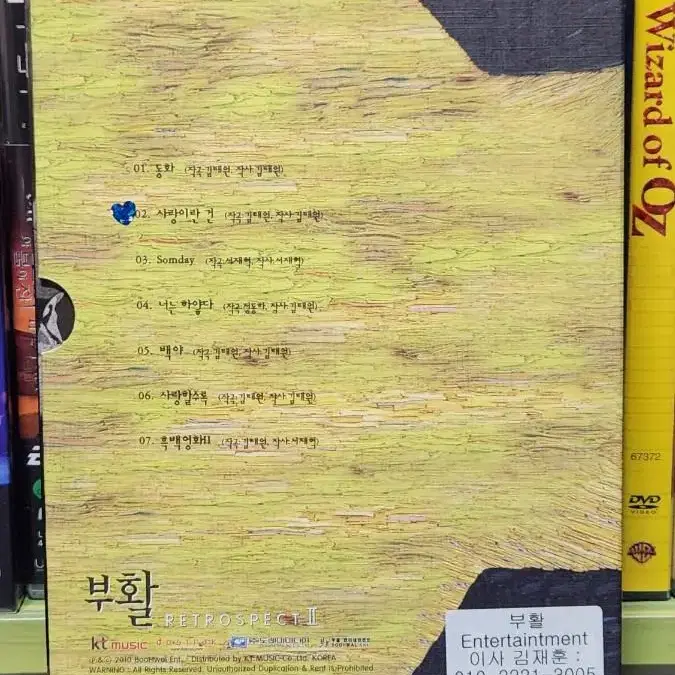 01. 동화 (작곡 김태원, 작사 김태원)
02. 사랑이란 건 (작곡 김태원, 작사 김태원)
03. Somday (작곡 서재혁, 작사 서재혁)
04. 너는 하얗다 (작곡 정동하, 작사 김태원)
05. 백야 (작곡 김태원, 작사 김태원)
06. 사랑할수록 (작곡 김태원, 작사 김태원)
07. 흑백영화II (작곡 김태원, 작사 서재혁)
부활
RETROSPECT II
kt music
℗ & © 2010 BooHwal Ent., Distributed by KT MUSIC Co.,Ltd. KOREA
WARNING : All Rights Reserved. Unauthorized Duplication & Rent is Prohibited
부활
Entertaintment
이사 김재훈 :
Wizard of Oz
67372
DVD
VIDEO